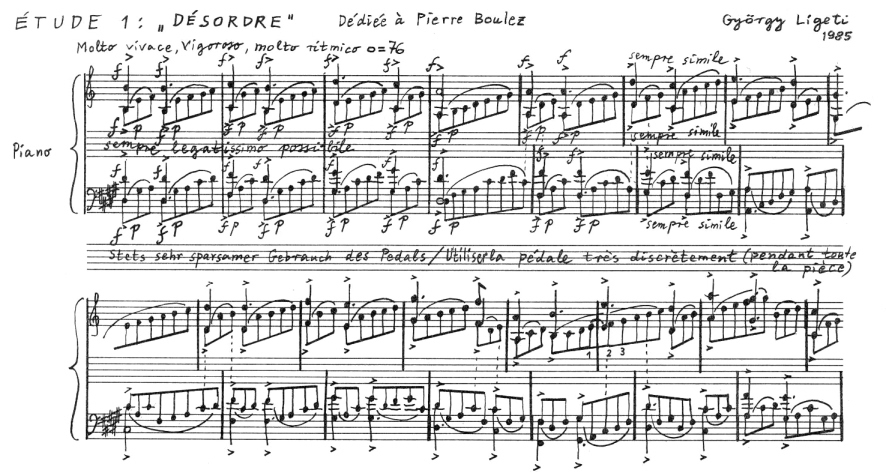 ÉTUDE 1: „DÉSORDRE" Dédiée à Pierre Boulez György Ligeti
1985
Molto vivace, vigoroso, molto ritmico o=76
f f f f f f f f f sempre simile
f p f p f p f p f p f p f p f p f p sempre simile
Piano sempre legatissimo possibile
f f f f f f f f f sempre simile
f p f p f p f p f p f p f p f p f p sempre simile
Stets sehr sparsamer Gebrauch des Pedals / Utiliser la pédale très discrètement (pendant toute
la pièce)
1 2 3